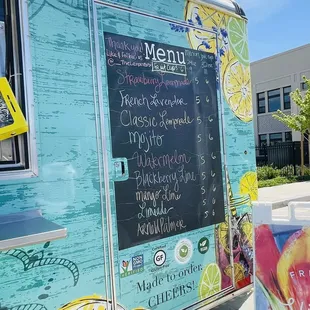 Thank you
Menu
Strawberry Lemonade 5 6
French Lavender 5 6
Classic Lemonade 5 6
Mojito 5 6
Watermelon 5 6
Blackberry Lime 5 6
Mango Lime 5 6
Limeade 5 6
Arnold Palmer 5 6
GF
Made to order.
CHEERS!
FR